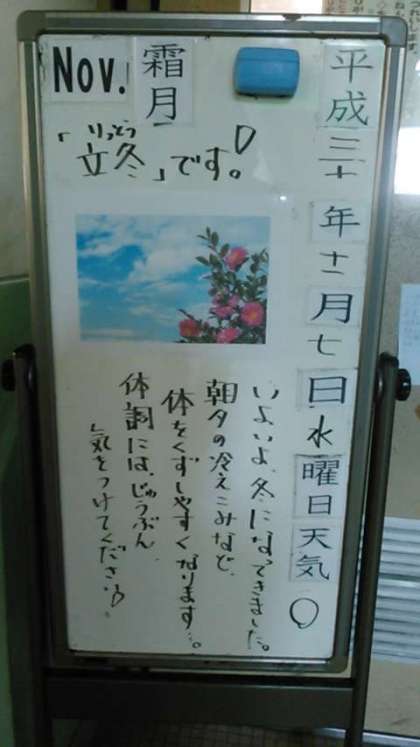 平成三十年十一月七日水曜日天気○
Nov.
霜月
りっとう
「立冬」です!
いよいよ、冬になってきました。
朝夕の冷えこみなど、
体をくずしやすくなります…。
体調には、じゅうぶん、
気をつけてください!